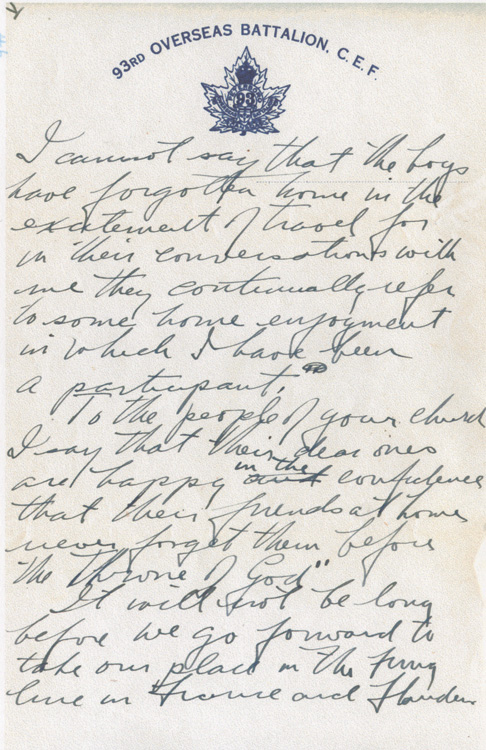 93RD OVERSEAS BATTALION, C.E.F.
93
I cannot say that the boys
have forgotten home in the
excitement of travel for
in their conversations with
me they continually refer
to some home enjoyment
in which I have been
a participant.
To the people of your church
I say that their dear ones
are happy in the confidence
that their friends at home
never forget them before
"the Throne of God"
It will not be long
before we go forward to
take our place in the firing
line in France and Flanders